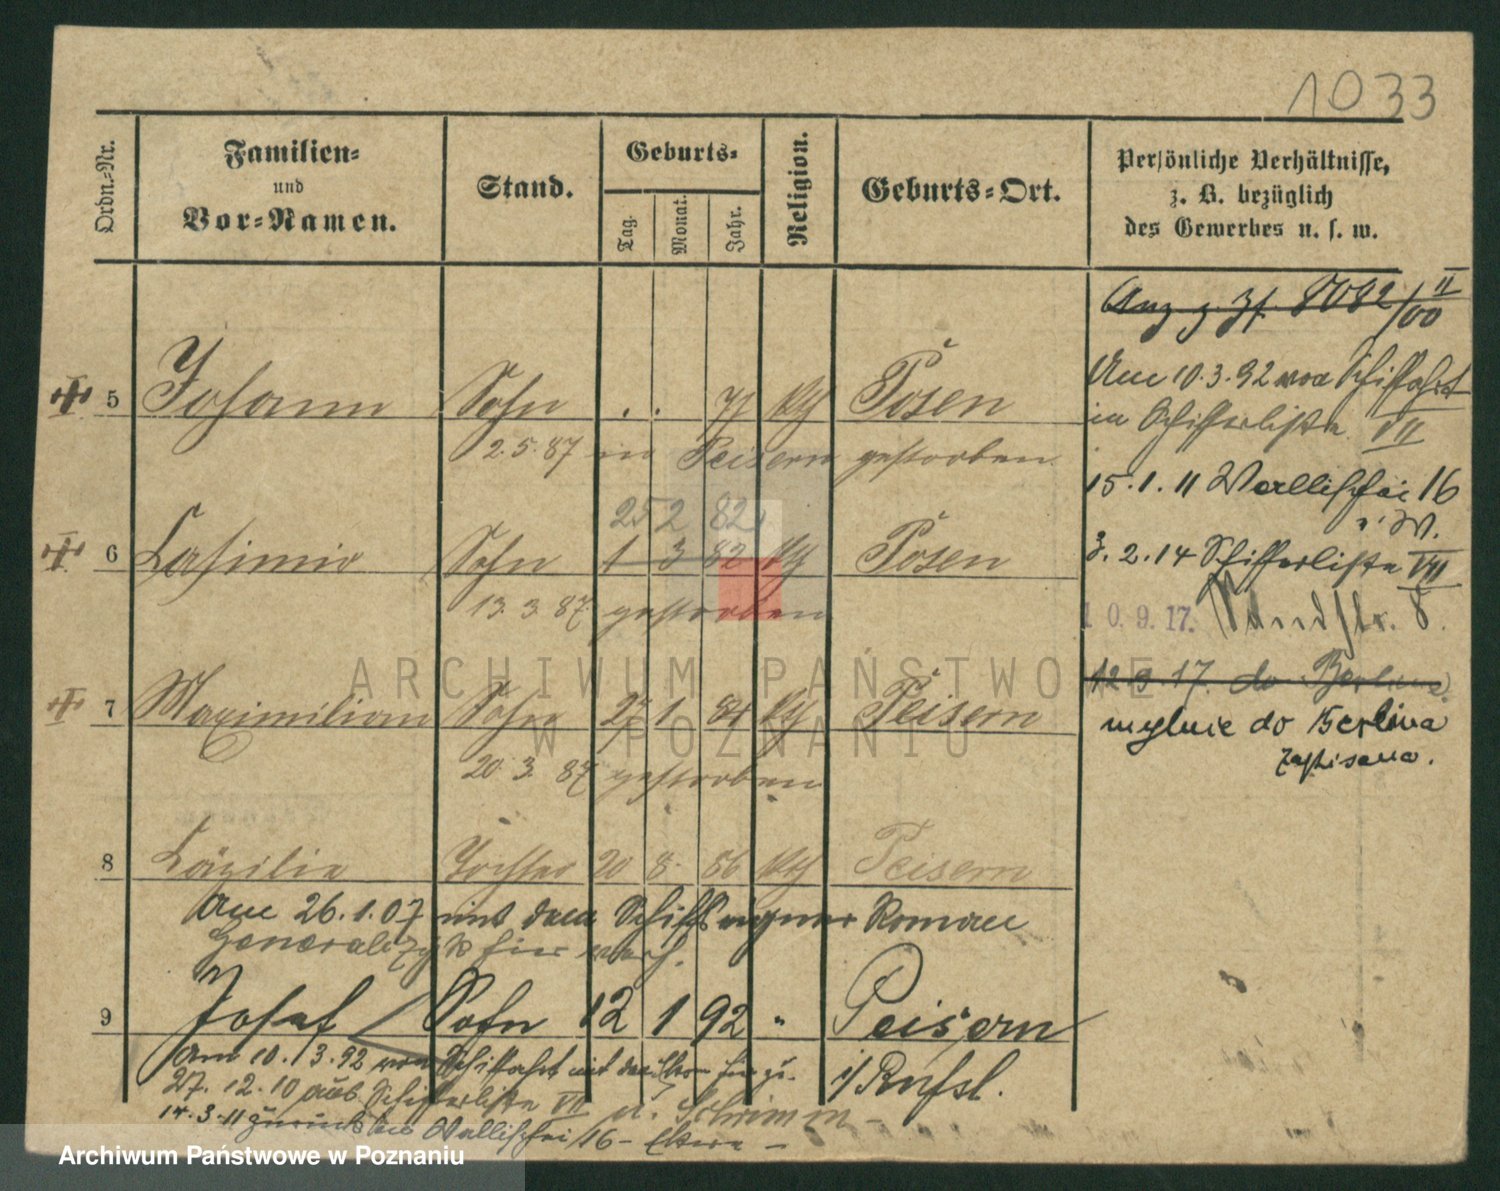 1033
Ordn.-Nr.
Familien-
und
Vor-Namen.
Stand.
Geburts-
Tag.
Monat.
Jahr.
Religion.
Geburts-Ort.
Persönliche Verhältnisse,
z. B. bezüglich
des Gewerbes u. s. w.
II
/00
5 Johann Sohn . . Posen
2.5.87 in Peisern gestorben
25 2 82
6 Casimir Sohn 1 3 82 kth Posen
13. 3. 87 gestorben
7 Maximilian Sohn 1 84 kth Peisern
20 3. 87 gestorben
8 Cäzilie Tochter 20 8. 86 kth Peisern
Am 26.1.07 mit dem Schiffseigner Roman
hier verh.
9 Josef Sohn 12 1 92 " Peisern
Am 10.3.92 von Schiffahrt mit
i/ Rußl.
27.12.10 aus Schifferliste VII u. Schrimm -
14.3.11 zurück Wallischei 16 - Eltern -
Am 10.3.92 von Schiffahrt
in Schifferliste VII
15.1.11 Wallischei 16
b. W.
3.2.14 Schifferliste VII
10.9.17. Sandstr. 8.
12.9.17. do Berlina
mylnie do Berlina
zapisano.
ARCHIWUM PAŃSTWOWE
W POZNANIU
Archiwum Państwowe w Poznaniu